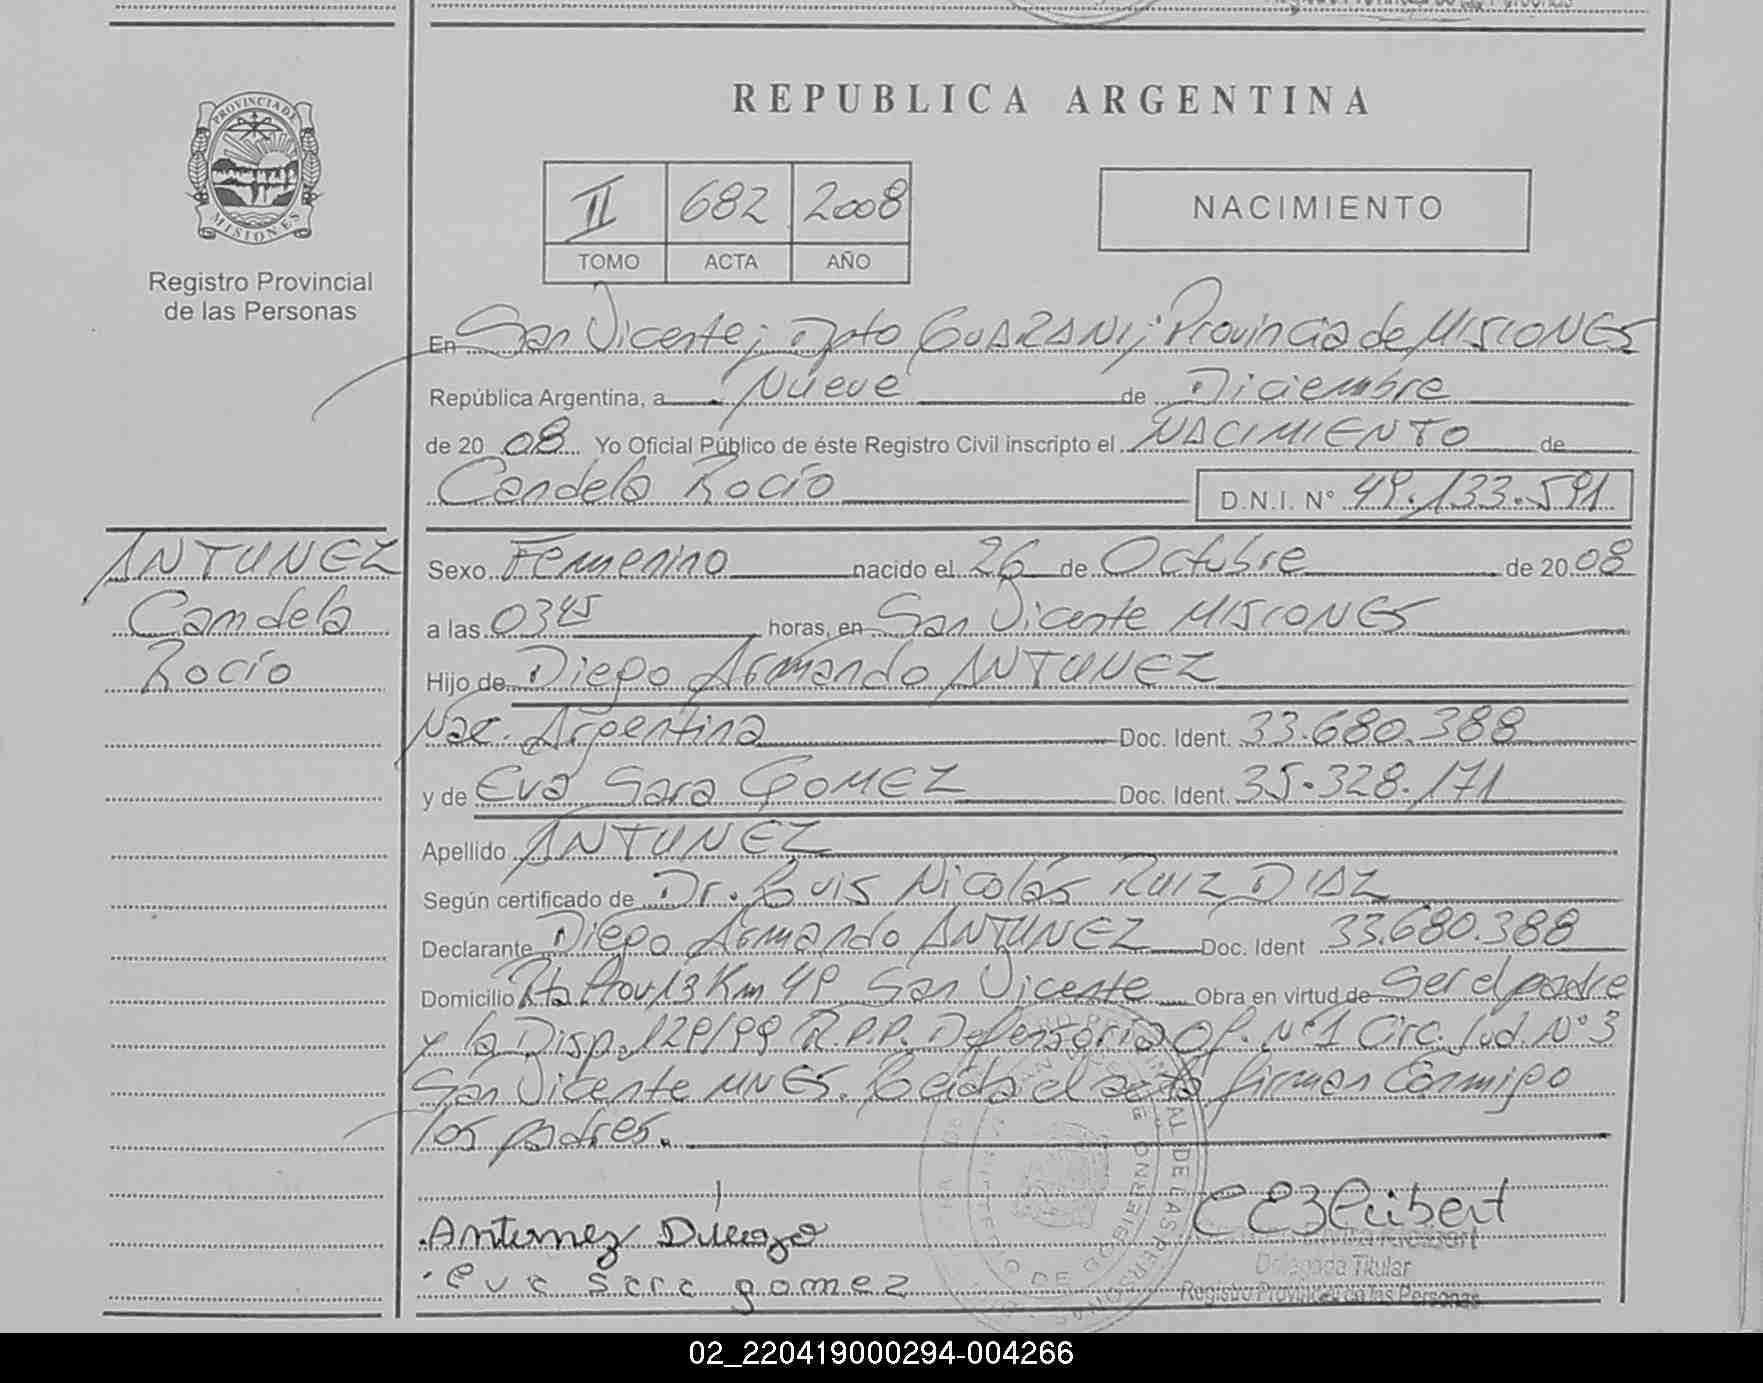 REPUBLICA ARGENTINA
PROVINCIA DE MISIONES
Registro Provincial
de las Personas
II 682 2008
TOMO ACTA AÑO
NACIMIENTO
En San Vicente; Dpto GUARANI; Provincia de MISIONES
República Argentina, a Nueve de Diciembre
de 20 08 Yo Oficial Público de éste Registro Civil inscripto el NACIMIENTO de
Candela Rocío D.N.I. N° 49.133.591
ANTUNEZ
Candela
Rocío
Sexo Femenino nacido el 26 de Octubre de 20 08
a las 0345 horas, en San Vicente MISIONES
Hijo de Diego Armando ANTUNEZ
Nac. Argentina Doc. Ident. 33.680.388
y de Eva Sara GOMEZ Doc. Ident. 35.328.171
Apellido ANTUNEZ
Según certificado de Dr. Luis Nicolás RUIZ DIAZ
Declarante Diego Armando ANTUNEZ Doc. Ident 33.680.388
Domicilio Rta Prov 13 Km 49 San Vicente Obra en virtud de ser el padre
y la Disp. 129/99 R.P.P. Defensoría Of. N°1 Circ. Jud. N°3
San Vicente MNES. Leida el acta firman Conmigo
los padres.
Antunez Diego
eva sara gomez
Delegada Titular
Registro Provincial de las Personas
02_220419000294-004266